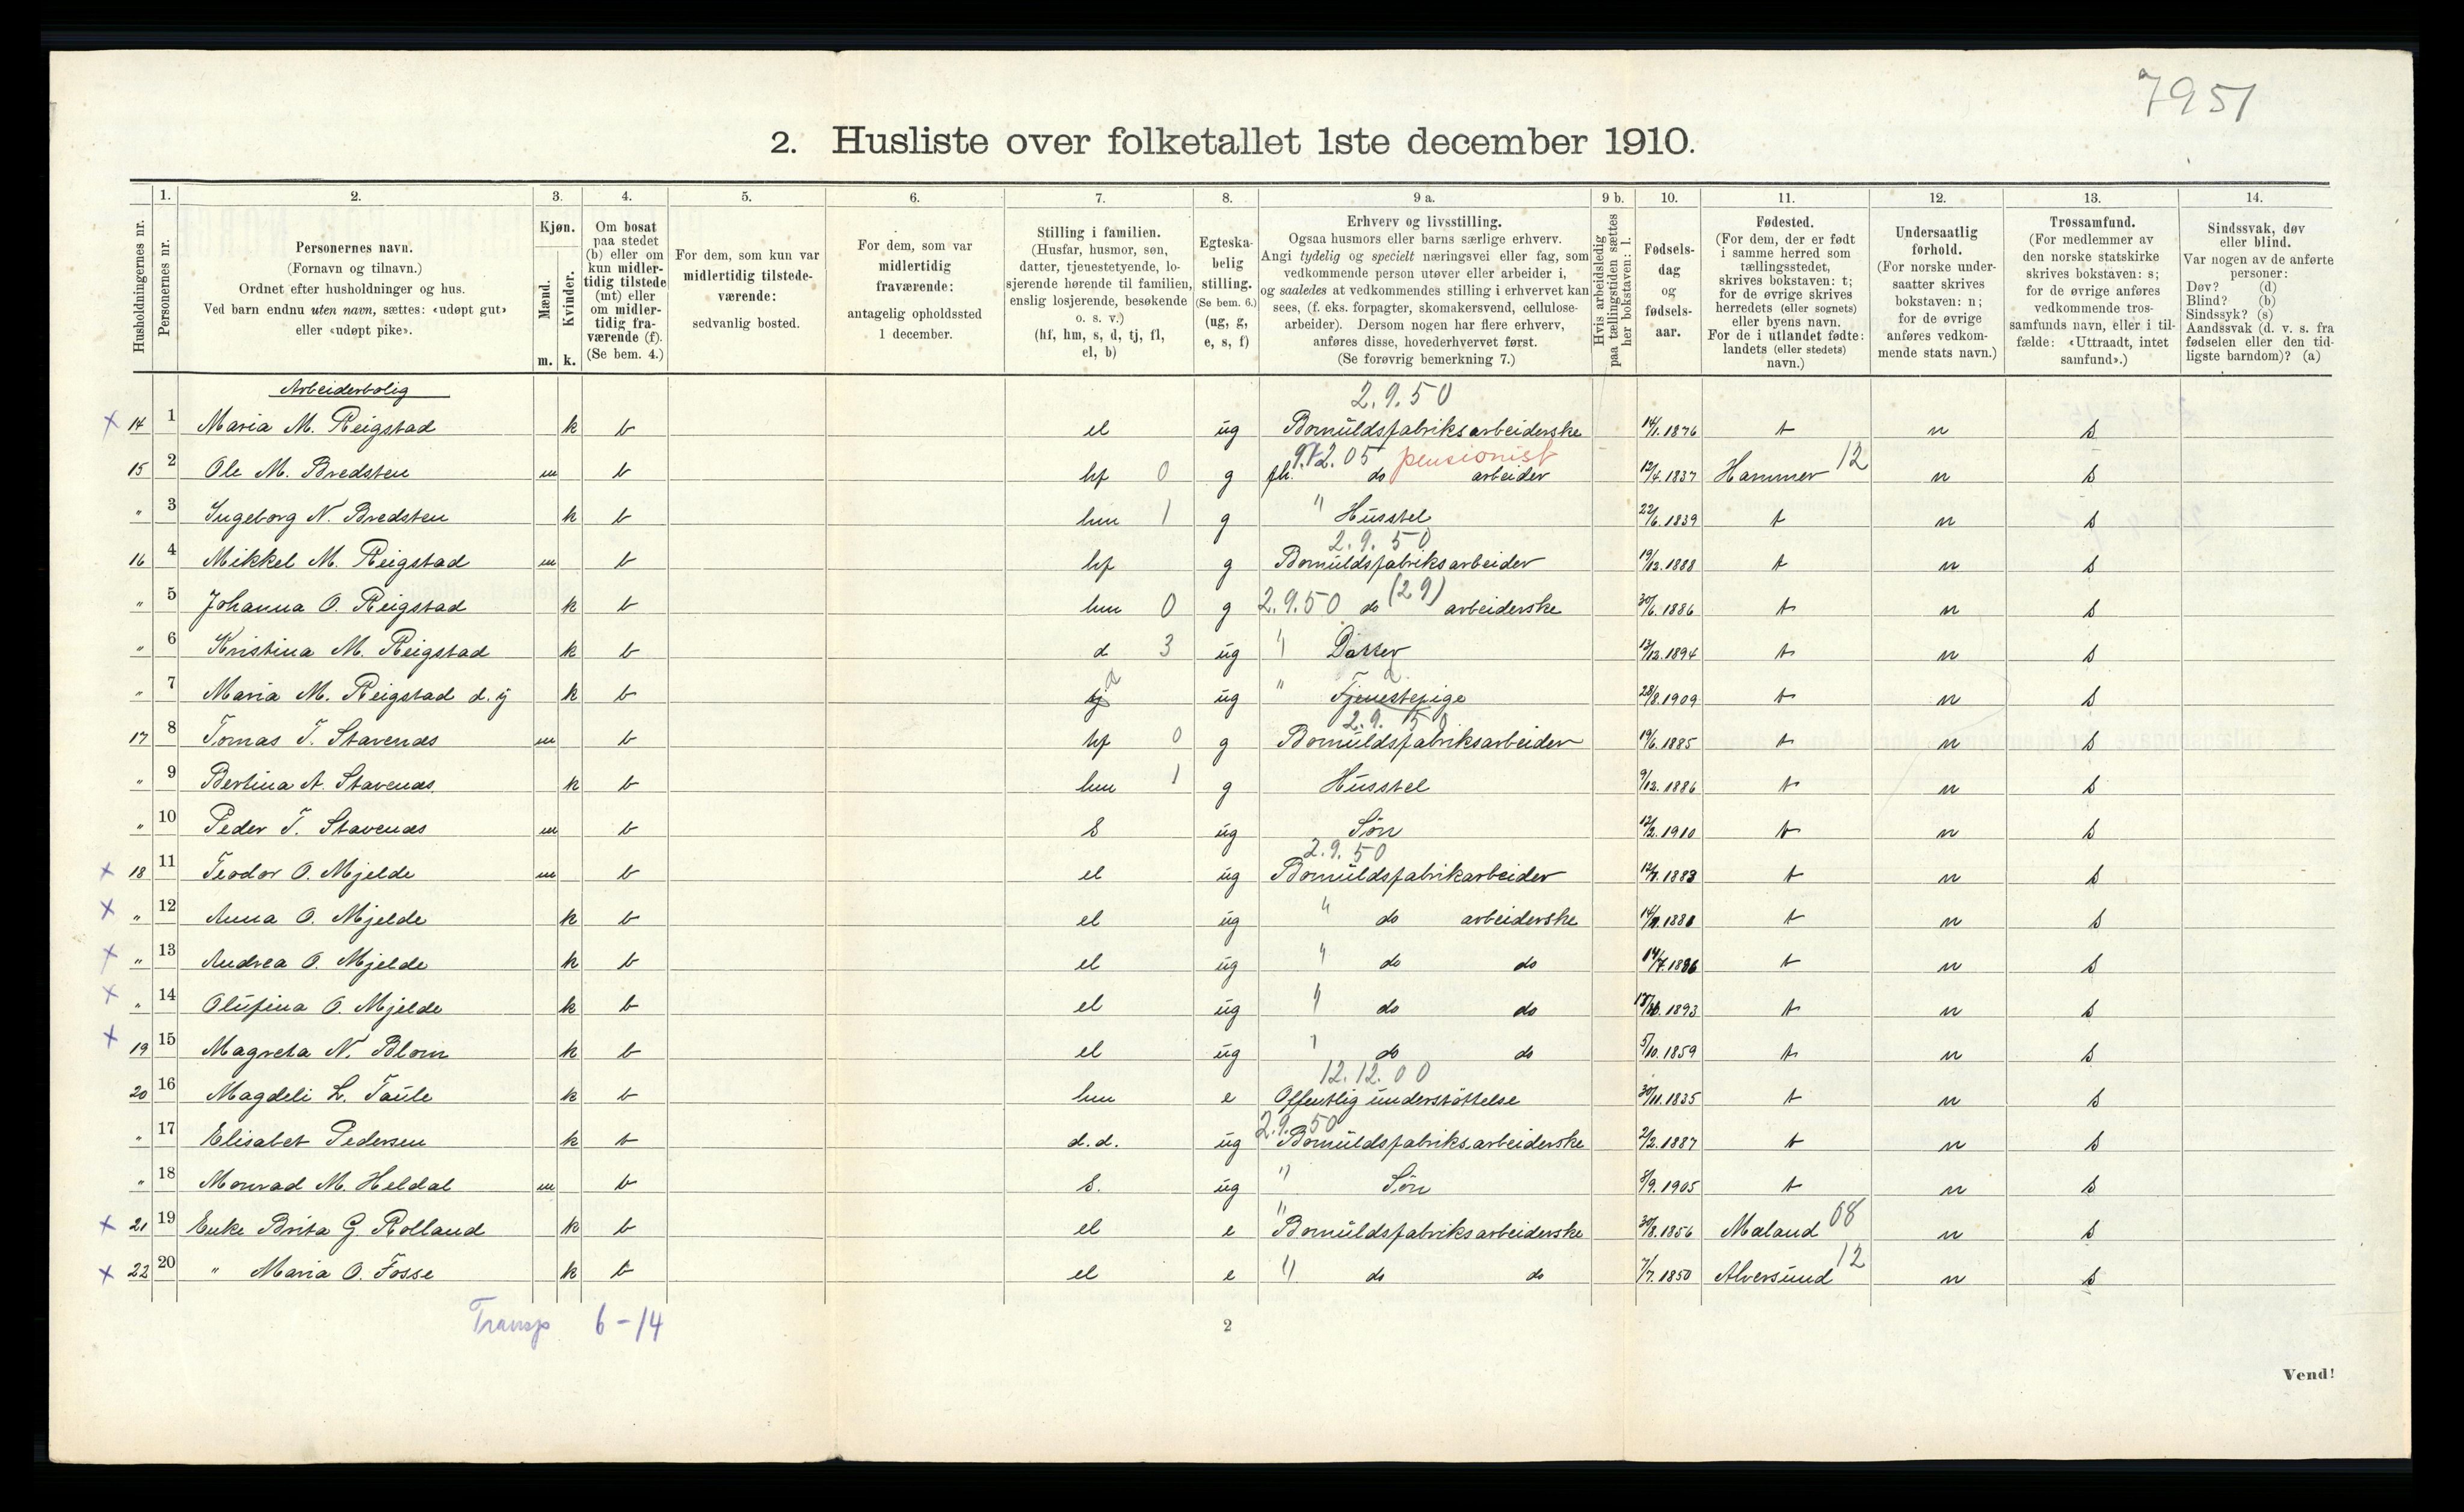 7951
2. Husliste over folketallet 1ste december 1910.
Husholdningernes nr.
1. Personernes nr.
2. Personernes navn. (Fornavn og tilnavn.) Ordnet efter husholdninger og hus. Ved barn endnu uten navn, sættes: «udøpt gut» eller «udøpt pike».
3. Kjøn. Mænd. m. Kvinder. k.
4. Om bosat paa stedet (b) eller om kun midlertidig tilstede (mt) eller om midlertidig fraværende (f). (Se bem. 4.)
5. For dem, som kun var midlertidig tilstedeværende: sedvanlig bosted.
6. For dem, som var midlertidig fraværende: antagelig opholdssted 1 december.
7. Stilling i familien. (Husfar, husmor, søn, datter, tjenestetyende, losjerende hørende til familien, enslig losjerende, besøkende o. s. v.) (hf, hm, s, d, tj, fl, el, b)
8. Egteskabelig stilling. (Se bem. 6.) (ug, g, e, s, f)
9 a. Erhverv og livsstilling. Ogsaa husmors eller barns særlige erhverv. Angi tydelig og specielt næringsvei eller fag, som vedkommende person utøver eller arbeider i, og saaledes at vedkommendes stilling i erhvervet kan sees, (f. eks. forpagter, skomakersvend, cellulosearbeider). Dersom nogen har flere erhverv, anføres disse, hovederhvervet først. (Se forøvrig bemerkning 7.)
9 b. Hvis arbeidsledig paa tællingstiden sættes her bokstaven: l.
10. Fødselsdag og fødselsaar.
11. Fødested. (For dem, der er født i samme herred som tællingsstedet, skrives bokstaven: t; for de øvrige skrives herredets (eller sognets) eller byens navn. For de i utlandet fødte: landets (eller stedets) navn.)
12. Undersaatlig forhold. (For norske undersaatter skrives bokstaven: n; for de øvrige anføres vedkommende stats navn.)
13. Trossamfund. (For medlemmer av den norske statskirke skrives bokstaven: s; for de øvrige anføres vedkommende trossamfunds navn, eller i tilfælde: «Uttraadt, intet samfund».)
14. Sindssvak, døv eller blind. Var nogen av de anførte personer: Døv? (d) Blind? (b) Sindssyk? (s) Aandssvak (d. v. s. fra fødselen eller den tidligste barndom)? (a)
Arbeiderbolig 2.9.50
x 14 1 Maria M. Reigstad k b el ug Bomuldsfabriksarbeiderske 14/1.1876 t n s
9.12.05 pensionist
15 2 Ole M. Bredsten m b hf 0 g fh. do arbeider 12/4.1837 Hammer 12 n s
" 3 Ingeborg N. Bredsten k b hm 1 g " Husstel 22/6.1839 t n s
2.9.50
16 4 Mikkel M. Reigstad m b hf g Bomuldsfabriksarbeider 19/12.1888 t n s
" 5 Johanna O. Reigstad k b hm 0 g 2.9.50 do (29) arbeiderske 30/6.1886 t n s
" 6 Kristina M. Reigstad k b d 3 ug " Datter 13/12.1894 t n s
" 7 Maria M. Reigstad d. y k b tj d ug " Tjenestepige 28/8.1909 t n s
2.9.50
17 8 Tomas T. Stavenæs m b hf 0 g Bomuldsfabriksarbeider 19/6.1885 t n s
" 9 Bertina A. Stavenæs k b hm 1 g Husstel 9/12.1886 t n s
" 10 Peder T. Stavenæs m b s ug Søn 12/2.1910 t n s
2.9.50
x 18 11 Teodor O. Mjelde m b el ug Bomuldsfabrikarbeider 1883 t n s
x " 12 Anna O. Mjelde k b el ug " do arbeiderske t n s
x " 13 Andrea O. Mjelde k b el ug " do do 1886 t n s
x " 14 Olufina O. Mjelde k b el ug " do do 1893 t n s
x 19 15 Magreta N. Blom k b el ug " do do 5/10.1859 t n s
12.12.00
20 16 Magdeli L. Taule k b hm e Offentlig understøttelse 30/11.1835 t n s
2.9.50
" 17 Elisabet Pedersen k b d.d. ug Bomuldsfabriksarbeiderske 2/2.1887 t n s
" 18 Monrad M. Heldal m b s. ug " Søn 8/9.1905 t n s
x 21 19 Enke Brita G. Rolland k b el e " Bomuldsfabriksarbeiderske 30/8.1856 Maland 68 n s
x 22 20 " Maria O. Fosse k b el e " do do 7/7.1850 Alversund 12 n s
Transp 6-14
2
Vend!